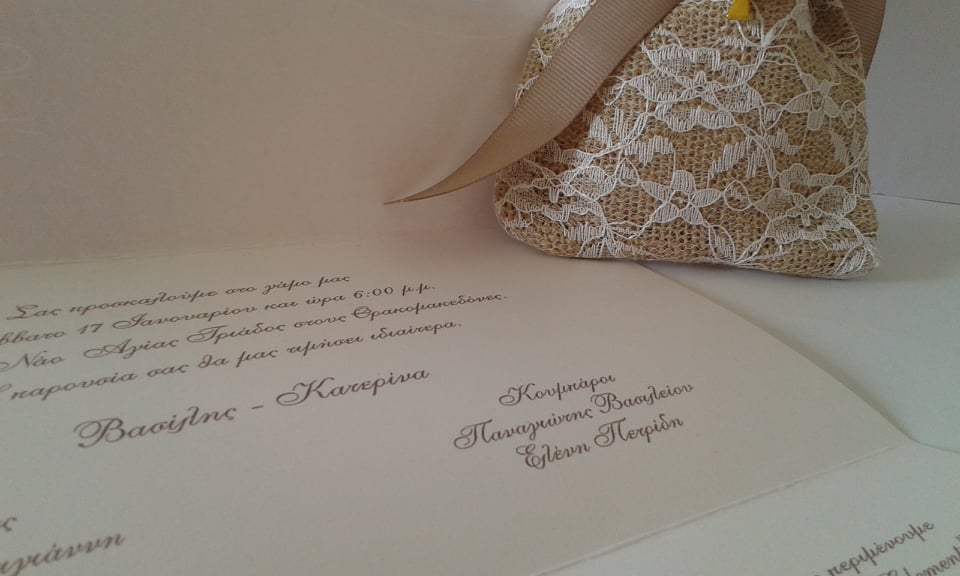 Σας προσκαλούμε στο γάμο μας
17 Ιανουαρίου και ώρα 6:00 μ.μ.
Νάο Αγίας Τριάδος στους Θρακομακεδόνες.
παρουσία σας θα μας τιμήσει ιδιαίτερα.
Βασίλης - Κατερίνα
Κουμπάροι
Παναγιώτης Βασιλείου
Ελένη Πετρίδη
περιμένουμε